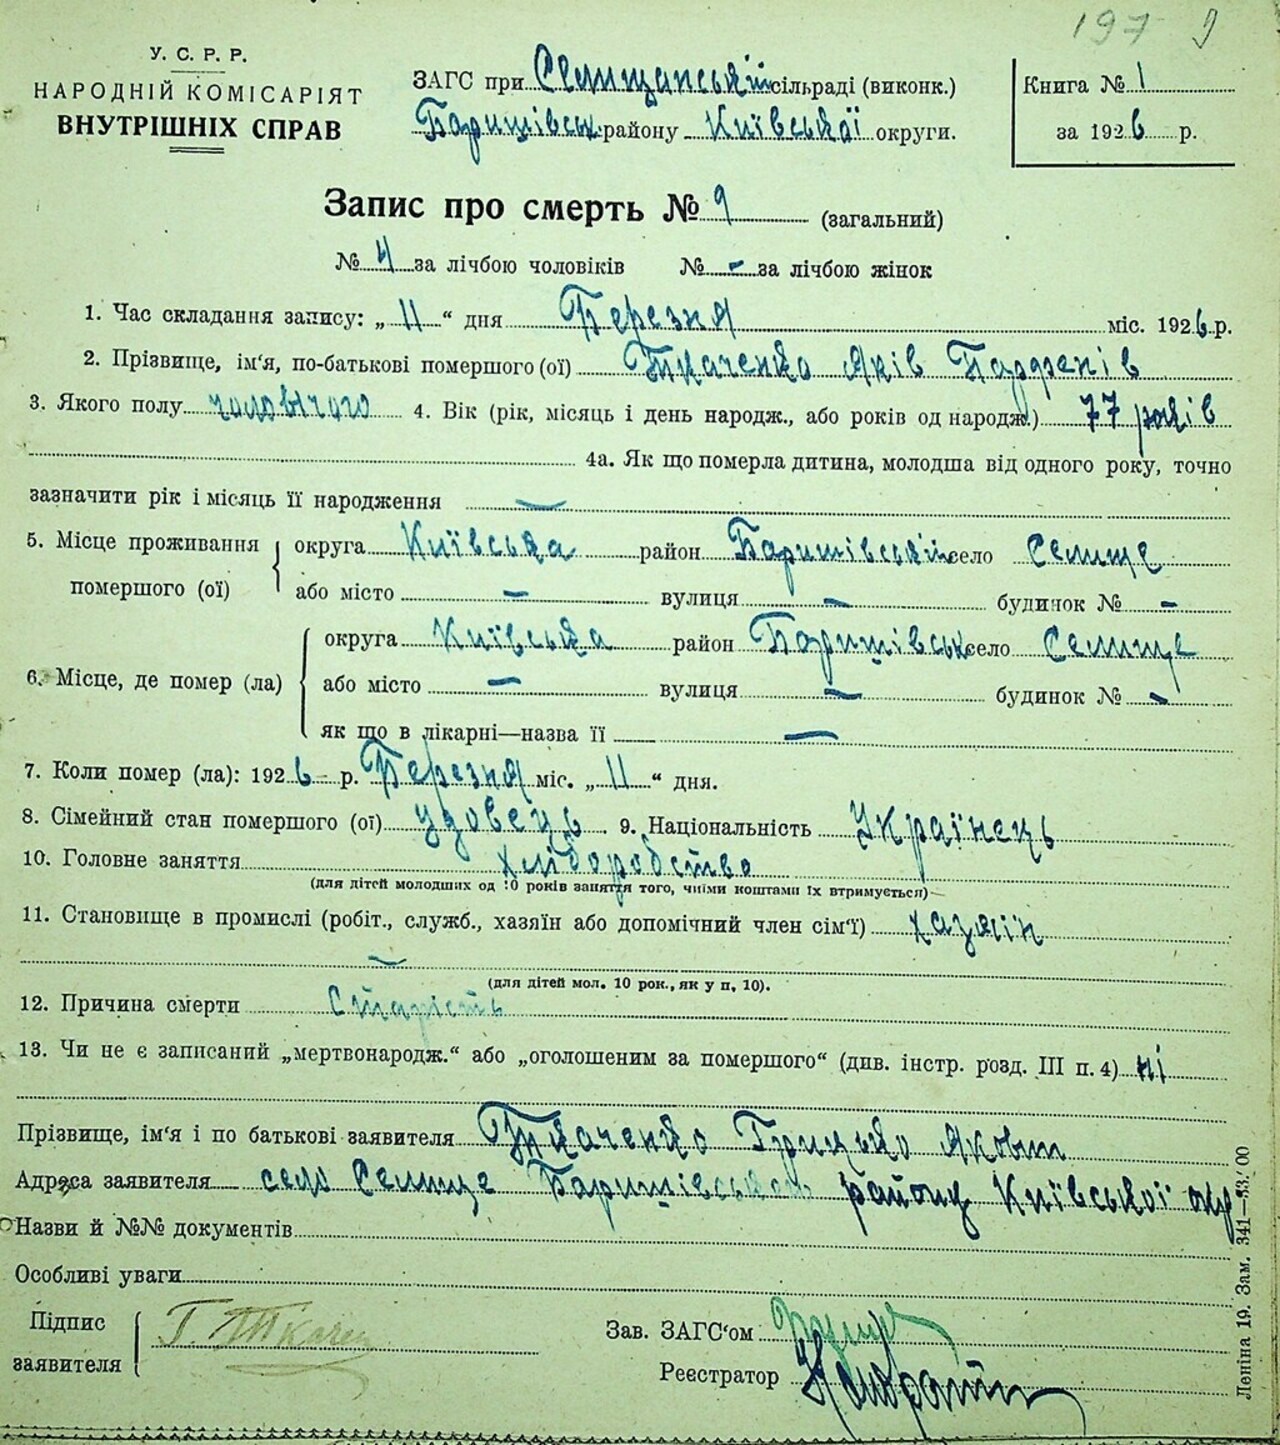 197
У. С. Р. Р.
НАРОДНІЙ КОМІСАРІЯТ
ВНУТРІШНІХ СПРАВ
ЗАГС при Селищанській сільраді (виконк.)
Баришівськ. району Київської округи.
Книга № 1
за 1926 р.
Запис про смерть № 9 (загальний)
№ 4 за лічбою чоловіків № - за лічбою жінок
1. Час складання запису: „ 11 “ дня Березня міс. 1926 р.
2. Прізвище, ім'я, по-батькові помершого (ої) Ткаченко Яків Парфенів
3. Якого полу чоловічого 4. Вік (рік, місяць і день народж., або років од народж.) 77 років
4а. Як що померла дитина, молодша від одного року, точно
зазначити рік і місяць її народження —
5. Місце проживання помершого (ої) округа Київська район Баришівський село Селище
або місто — вулиця — будинок № -
6. Місце, де помер (ла) округа Київська район Баришівськ село Селище
або місто — вулиця — будинок № -
як що в лікарні—назва її —
7. Коли помер (ла): 1926 р. Березня міс. „ 11 “ дня.
8. Сімейний стан помершого (ої) удовець 9. Національність Українець
10. Головне заняття хліборобство
(для дітей молодших од 10 років заняття того, чиїми коштами їх втримується)
11. Становище в промислі (робіт., служб., хазяїн або допомічний член сім'ї) хазяїн
—
(для дітей мол. 10 рок., як у п, 10).
12. Причина смерти Старість
13. Чи не є записаний „мертвонародж.“ або „оголошеним за помершого“ (див. інстр. розд. III п. 4) ні
Прізвище, ім'я і по батькові заявителя Ткаченко Грицько Якович
Адреса заявителя село Селище Баришівського району Київської окр.
Назви й №№ документів
Особливі уваги
Підпис заявителя Г. Ткачен
Зав. ЗАГС'ом
Реєстратор
Леніна 19. Зам. 341—33.00